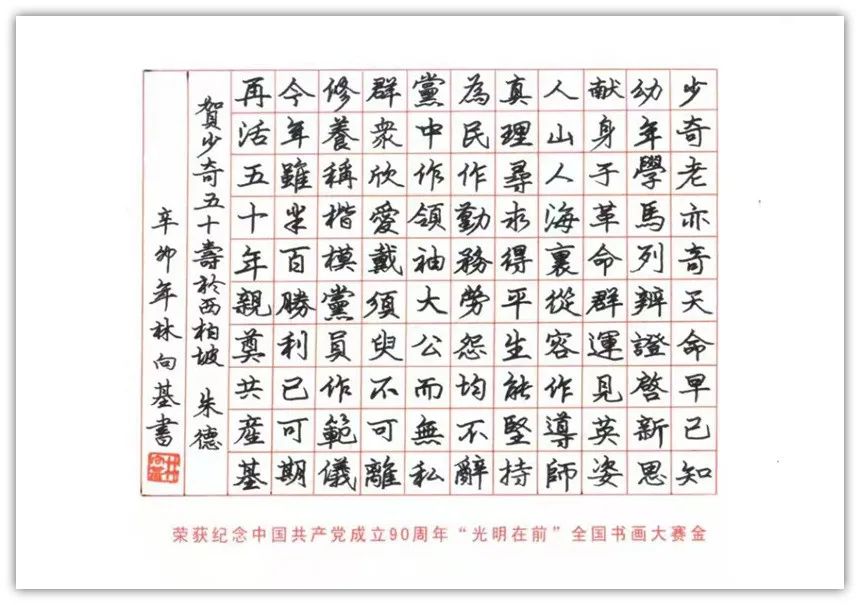 少奇老亦奇天命早已知
幼年學馬列辨證啓新思
献身于革命群運見英姿
人山人海裏從容作導師
真理尋求得平生能堅持
為民作勤務勞怨均不辭
黨中作領袖大公而無私
群衆欣愛戴須臾不可離
修養稱楷模黨員作範儀
今年雖半百勝利已可期
再活五十年親奠共産基
賀少奇五十壽於西柏坡 朱德
辛卯年林向基書
荣获纪念中国共产党成立90周年“光明在前”全国书画大赛金